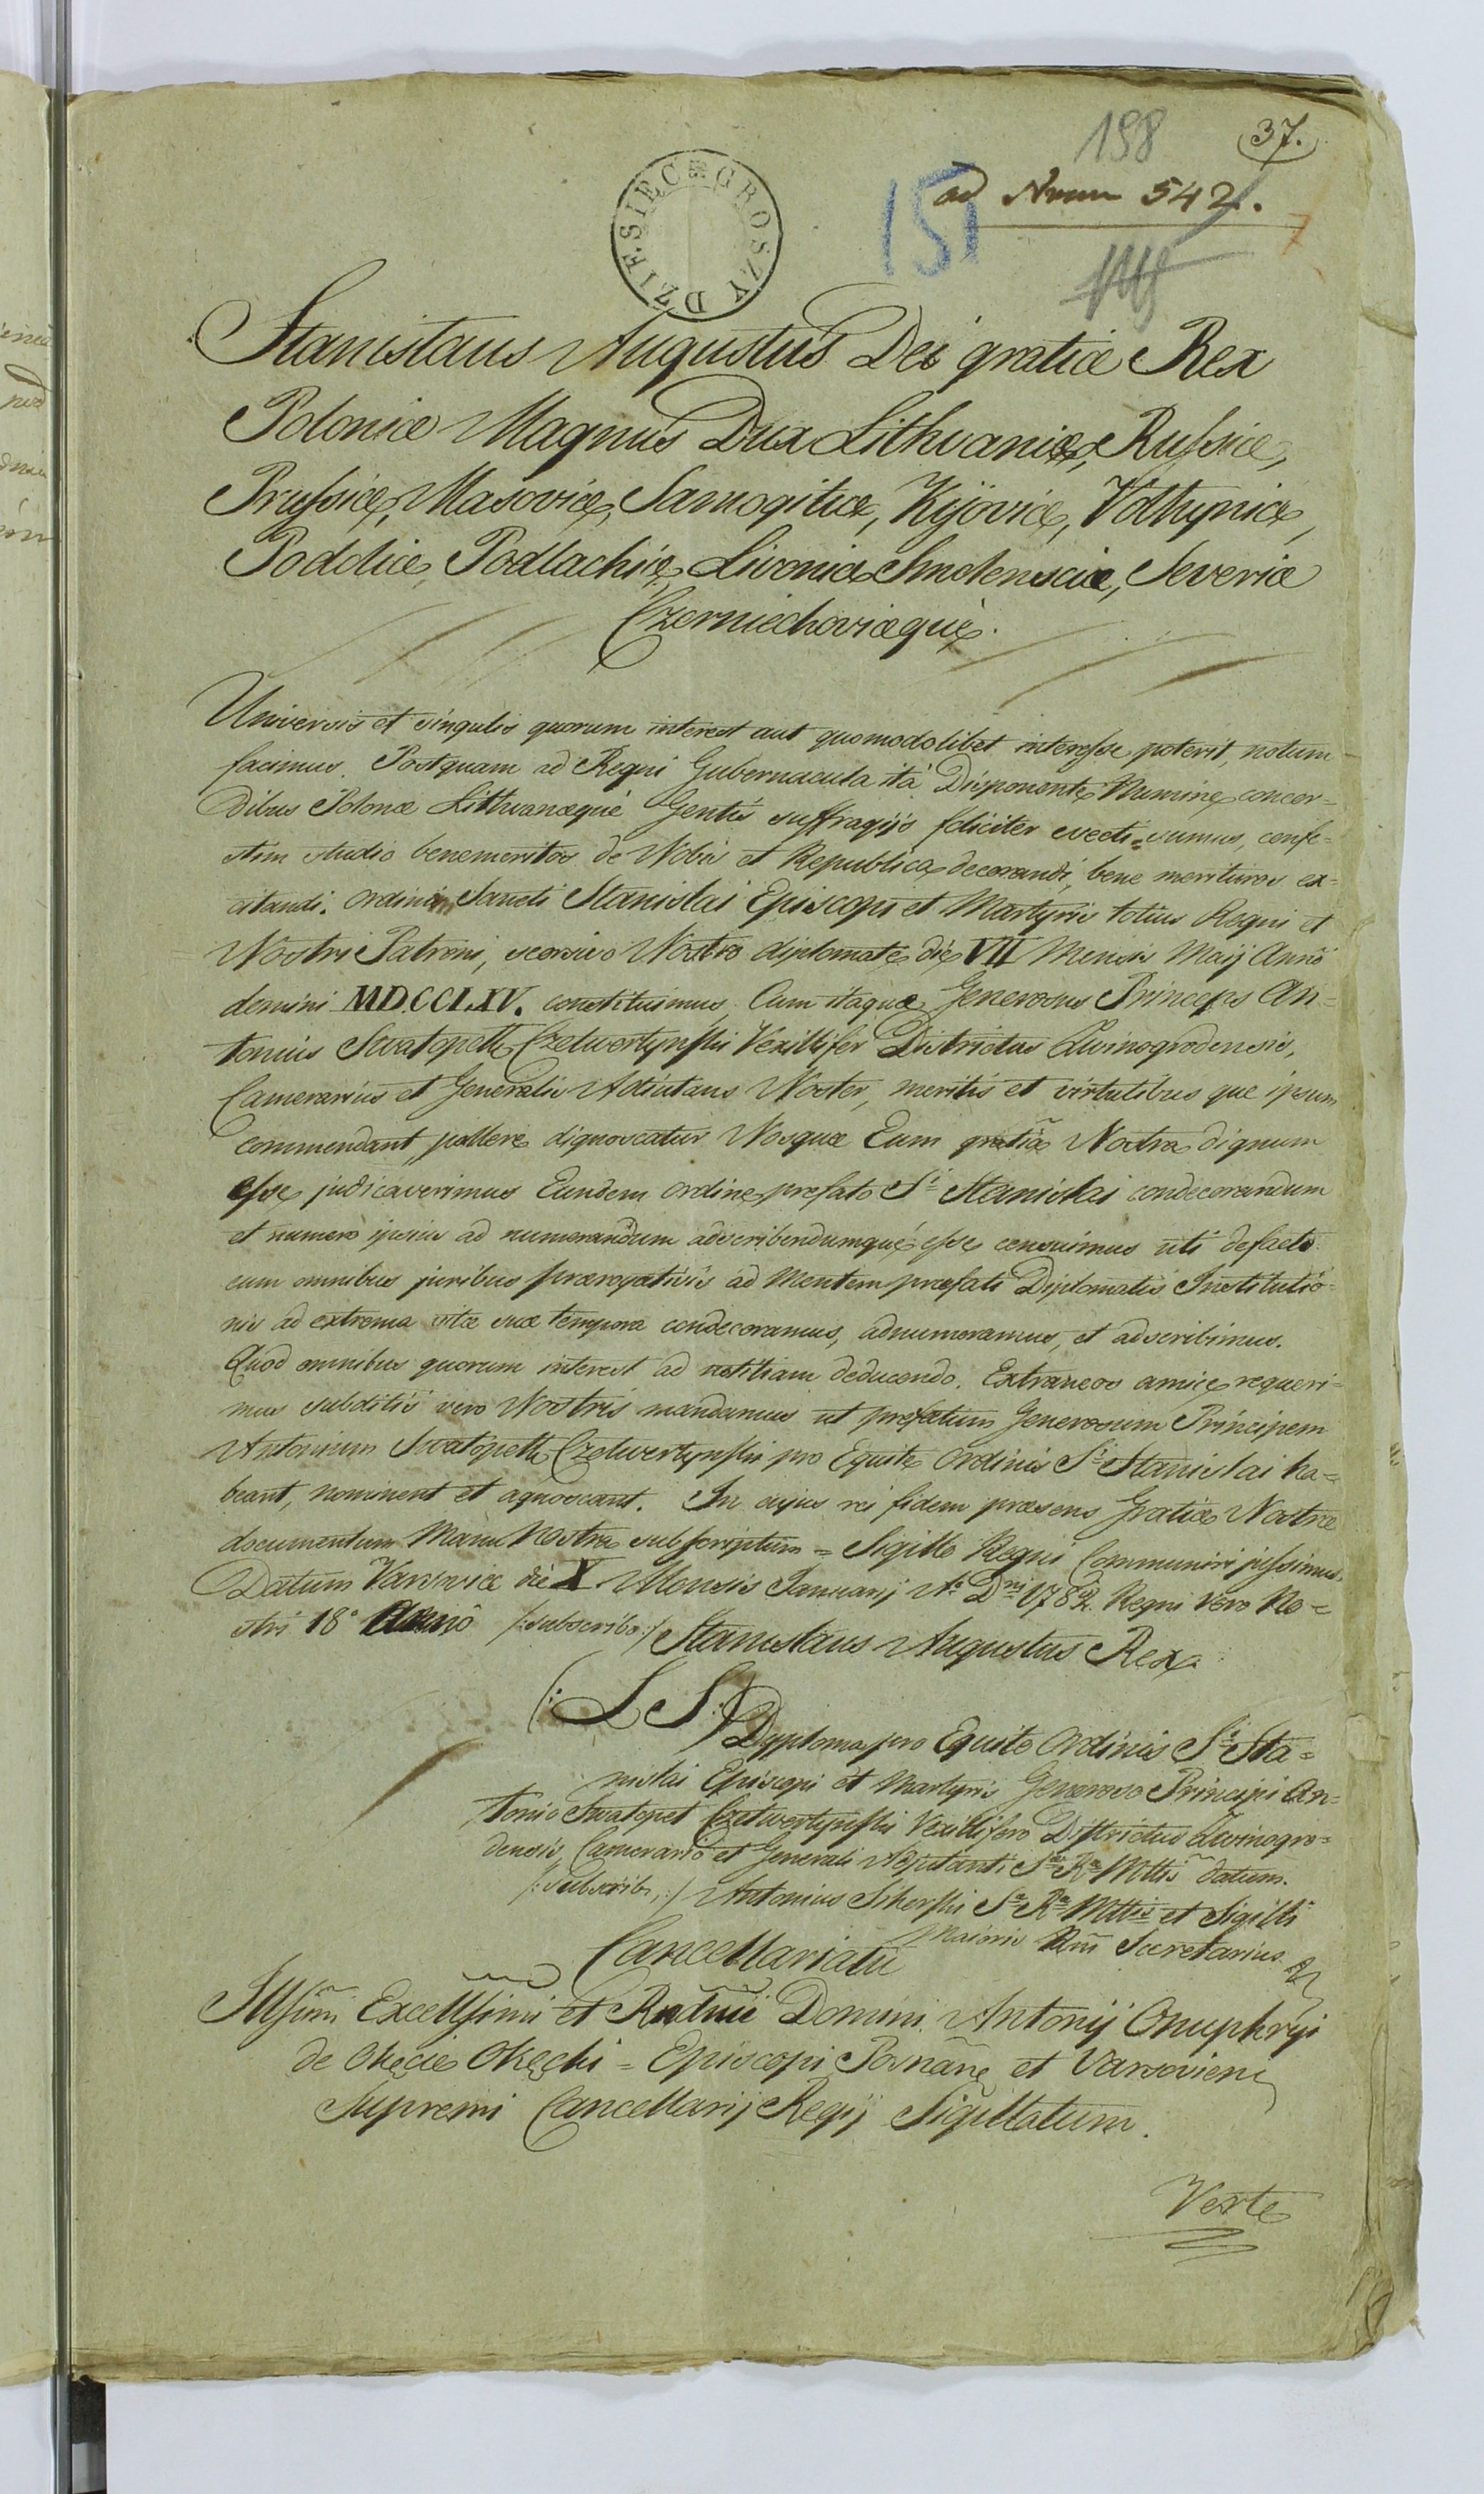 198
37.
ad Nrum 542.
151
DZIESIĘC GROSZY
Stanislaus Augustus Dei gratiæ Rex
Poloniæ Magnus Dux Lithvaniæ, Russiæ,
Prussiæ, Masoviæ, Samogitiæ, Kijoviæ, Volhyniæ,
Podoliæ, Podlachiæ, Livoniæ Smolensciæ, Severiæ
Czerniechoviæquè.
Universis et singulis quorum interest aut quomodolibet interesse poterit, notum
facimus. Postquam ad Regni Gubernacula ità Disponente Numine, concor=
dibus Polonæ Lithvanæquè Gentis suffragijs feliciter evecti sumus, confe=
stim studio benemeritos de Nobis et Republica decorandi, bene merituros ex=
citandi. Ordinem Sancti Stanislai Episcopi et Martyris totius Regni et
Nostri Patroni, seorsivo Nostro diplomate die VII Mensis Maij Annô
domini MDCCLXV. constituimus. Cum itaque Generosus Princeps An=
tonius Swatopelk Czetwertynski Vexillifer Districtus Zwinogrodensis,
Camerarius et Generalis Adiutans Noster, meritis et virtutibus que ipsum
commendant, pollere dignoscatur Nosque Eum gratiâ Nostra dignum
esse judicaverimus Eundem Ordine prefato Sti Stanislai condecorandum
et numero ipsius ad numerandum adscribendumquè esse censuimus uti defacto
cum omnibus juribus prærogativis ad Mentem præfati Diplomatis Institutio=
nis ad extrema vitæ suæ tempora condecoramus, adnumeramus, et adscribimus.
Quod omnibus quorum interest ad notitiam deducendo. Extraneos amice requiri=
mus subditis vero Nostris mandamus ut prefatum Generosum Principem
Antonium Swatopelk Czetwertynski pro Equite Ordinis Sti Stanislai ha=
beant, nominent et agnoscant. In cujus rei fidem præsens Gratiæ Nostræ
documentum Manu Nostra subscriptum = Sigillo Regni Communiri jussimus.
Datum Varsoviæ die X. Mensis Januarij Ao Dni 1782. Regni Vero No=
stri 18o Annô /:subscribo:/ Stanislaus Augustus Rex.
(: L S :)
Dyploma pro Equite Ordinis Sti Sta=
nislai Episcopi et Martyris Generoso Principi An=
tonio Swatopet Czetwertynski Vexillifero Districtus Zwinogro=
densis, Camerario et Generali Adjutanti Sae Rae Mttis datum.
/:Subscrib,:/ Antonius Sikorski Sae Rae Mttis et Sigilli
Maioris Rni Secretarius
Cancellariatu
Illsimi Excellsimi et Rndmi Domini Antonij Onuphryi
de Okęcie Okęcki = Episcopi Posnane et Varsovien
Supremi Cancellarij Regij Sigillatum.
Verte